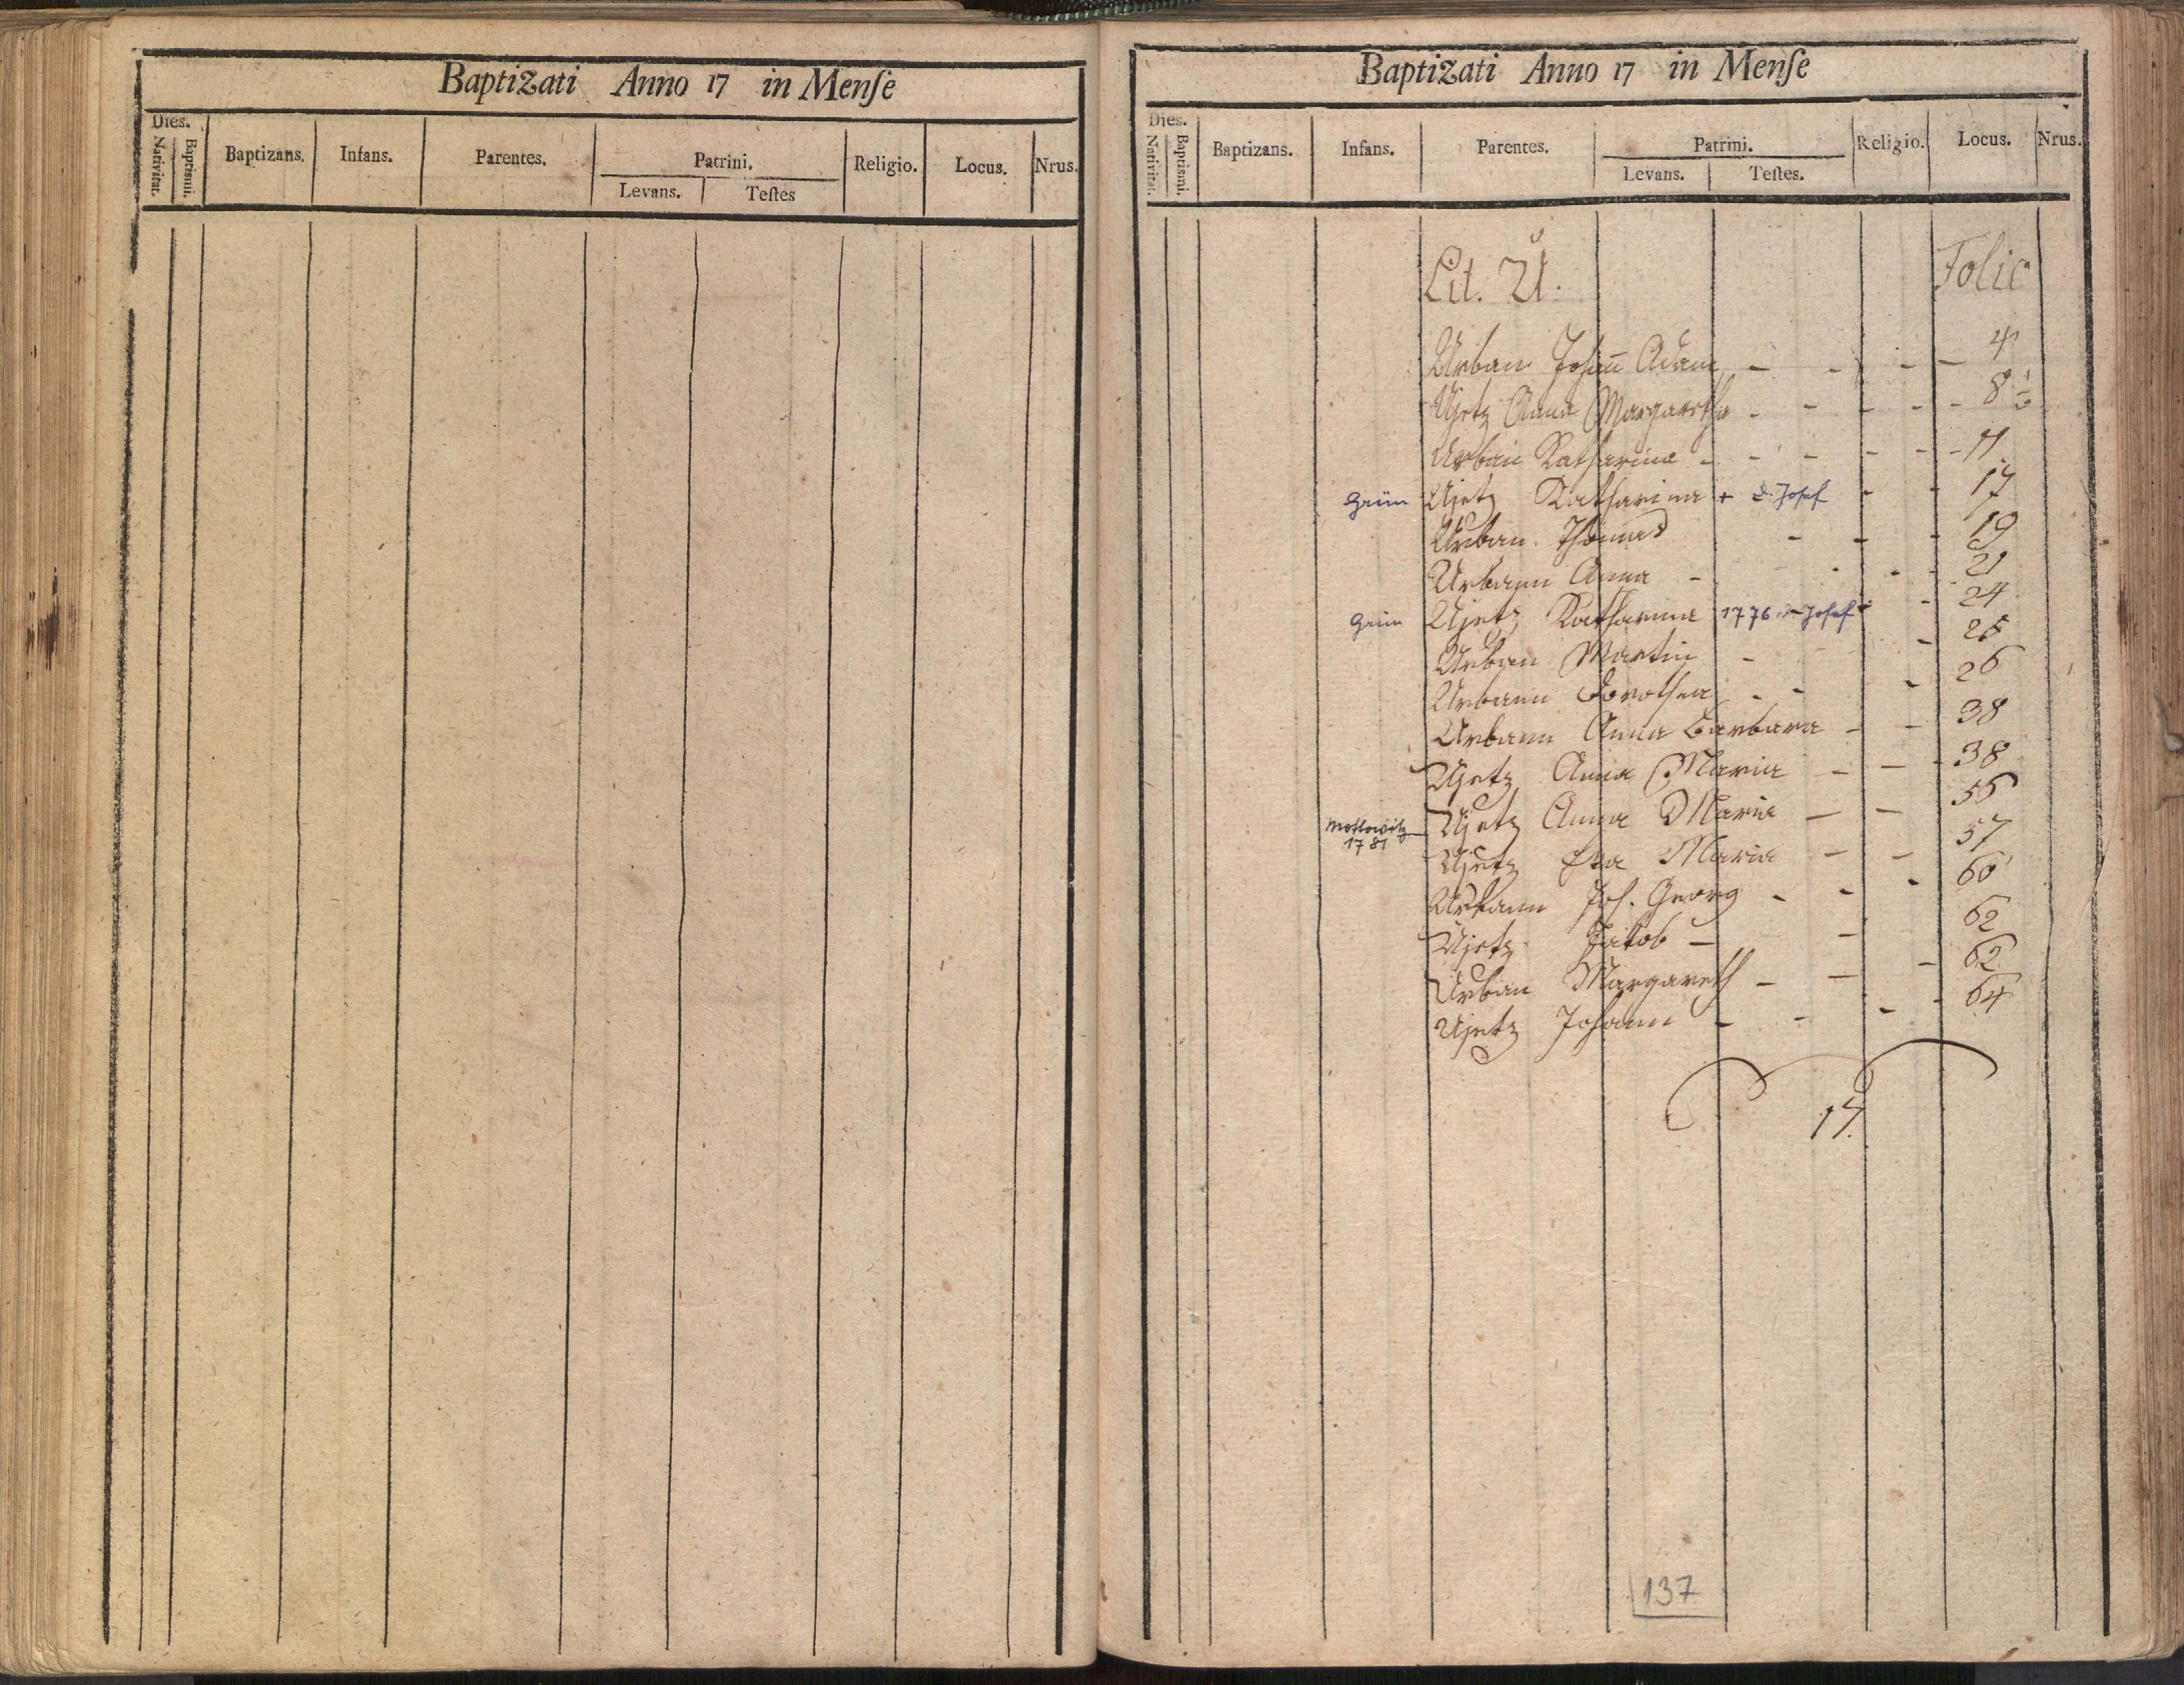 Baptizati Anno 17 in Menſe
Dies.
Nativitat. Baptismi. Baptizans. Infans. Parentes. Patrini. Religio. Locus. Nrus.
Levans. Teſtes
Baptizati Anno 17 in Menſe
Dies.
Nativitat. Baptismi. Baptizans. Infans. Parentes. Patrini. Religio. Locus. Nrus.
Levans. Teſtes.
Lit. U. Folio
Urban Johañ Adam - - - - 4
Ujetz Anna Margaretha - - - - - 8
Urban Katharina - - - - - - 11
Grün Ujetz Katharina + d. Josef - - 17
Urban Thomas - - - 19
Urbann Anna - - - - 21
Grün Ujetz Katharina 1776 d. Josef - - 24
Urban Martin - - 25
Urbann Dorothea - - - 26
Urbann Anna Barbara - - 38
Ujetz Anna Maria - - - 38
Mottowitz 1781 Ujetz Anna Maria - - 56
Ujetz Eva Maria - - 57
Urbann Joh. Georg - - - 60
Ujetz Jakob - - 62
Urban Margareth - - - 62
Ujetz Johann - - - - 64
17.
137